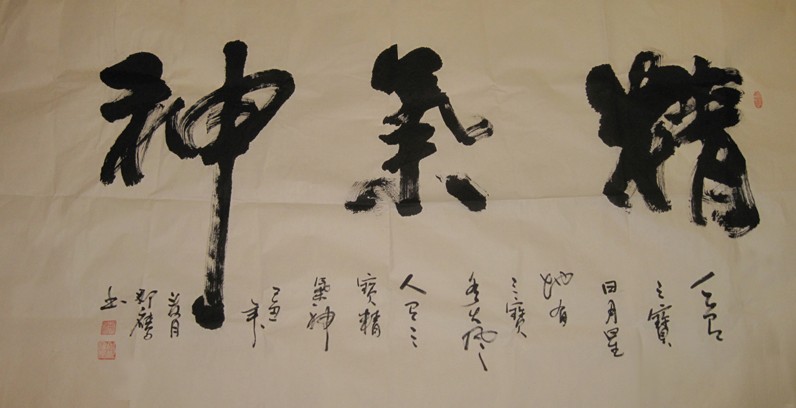 精氣神
天有
三寶
日月星
地有
三寶
水火風
人有三
寶精
氣神
丑年
月
書